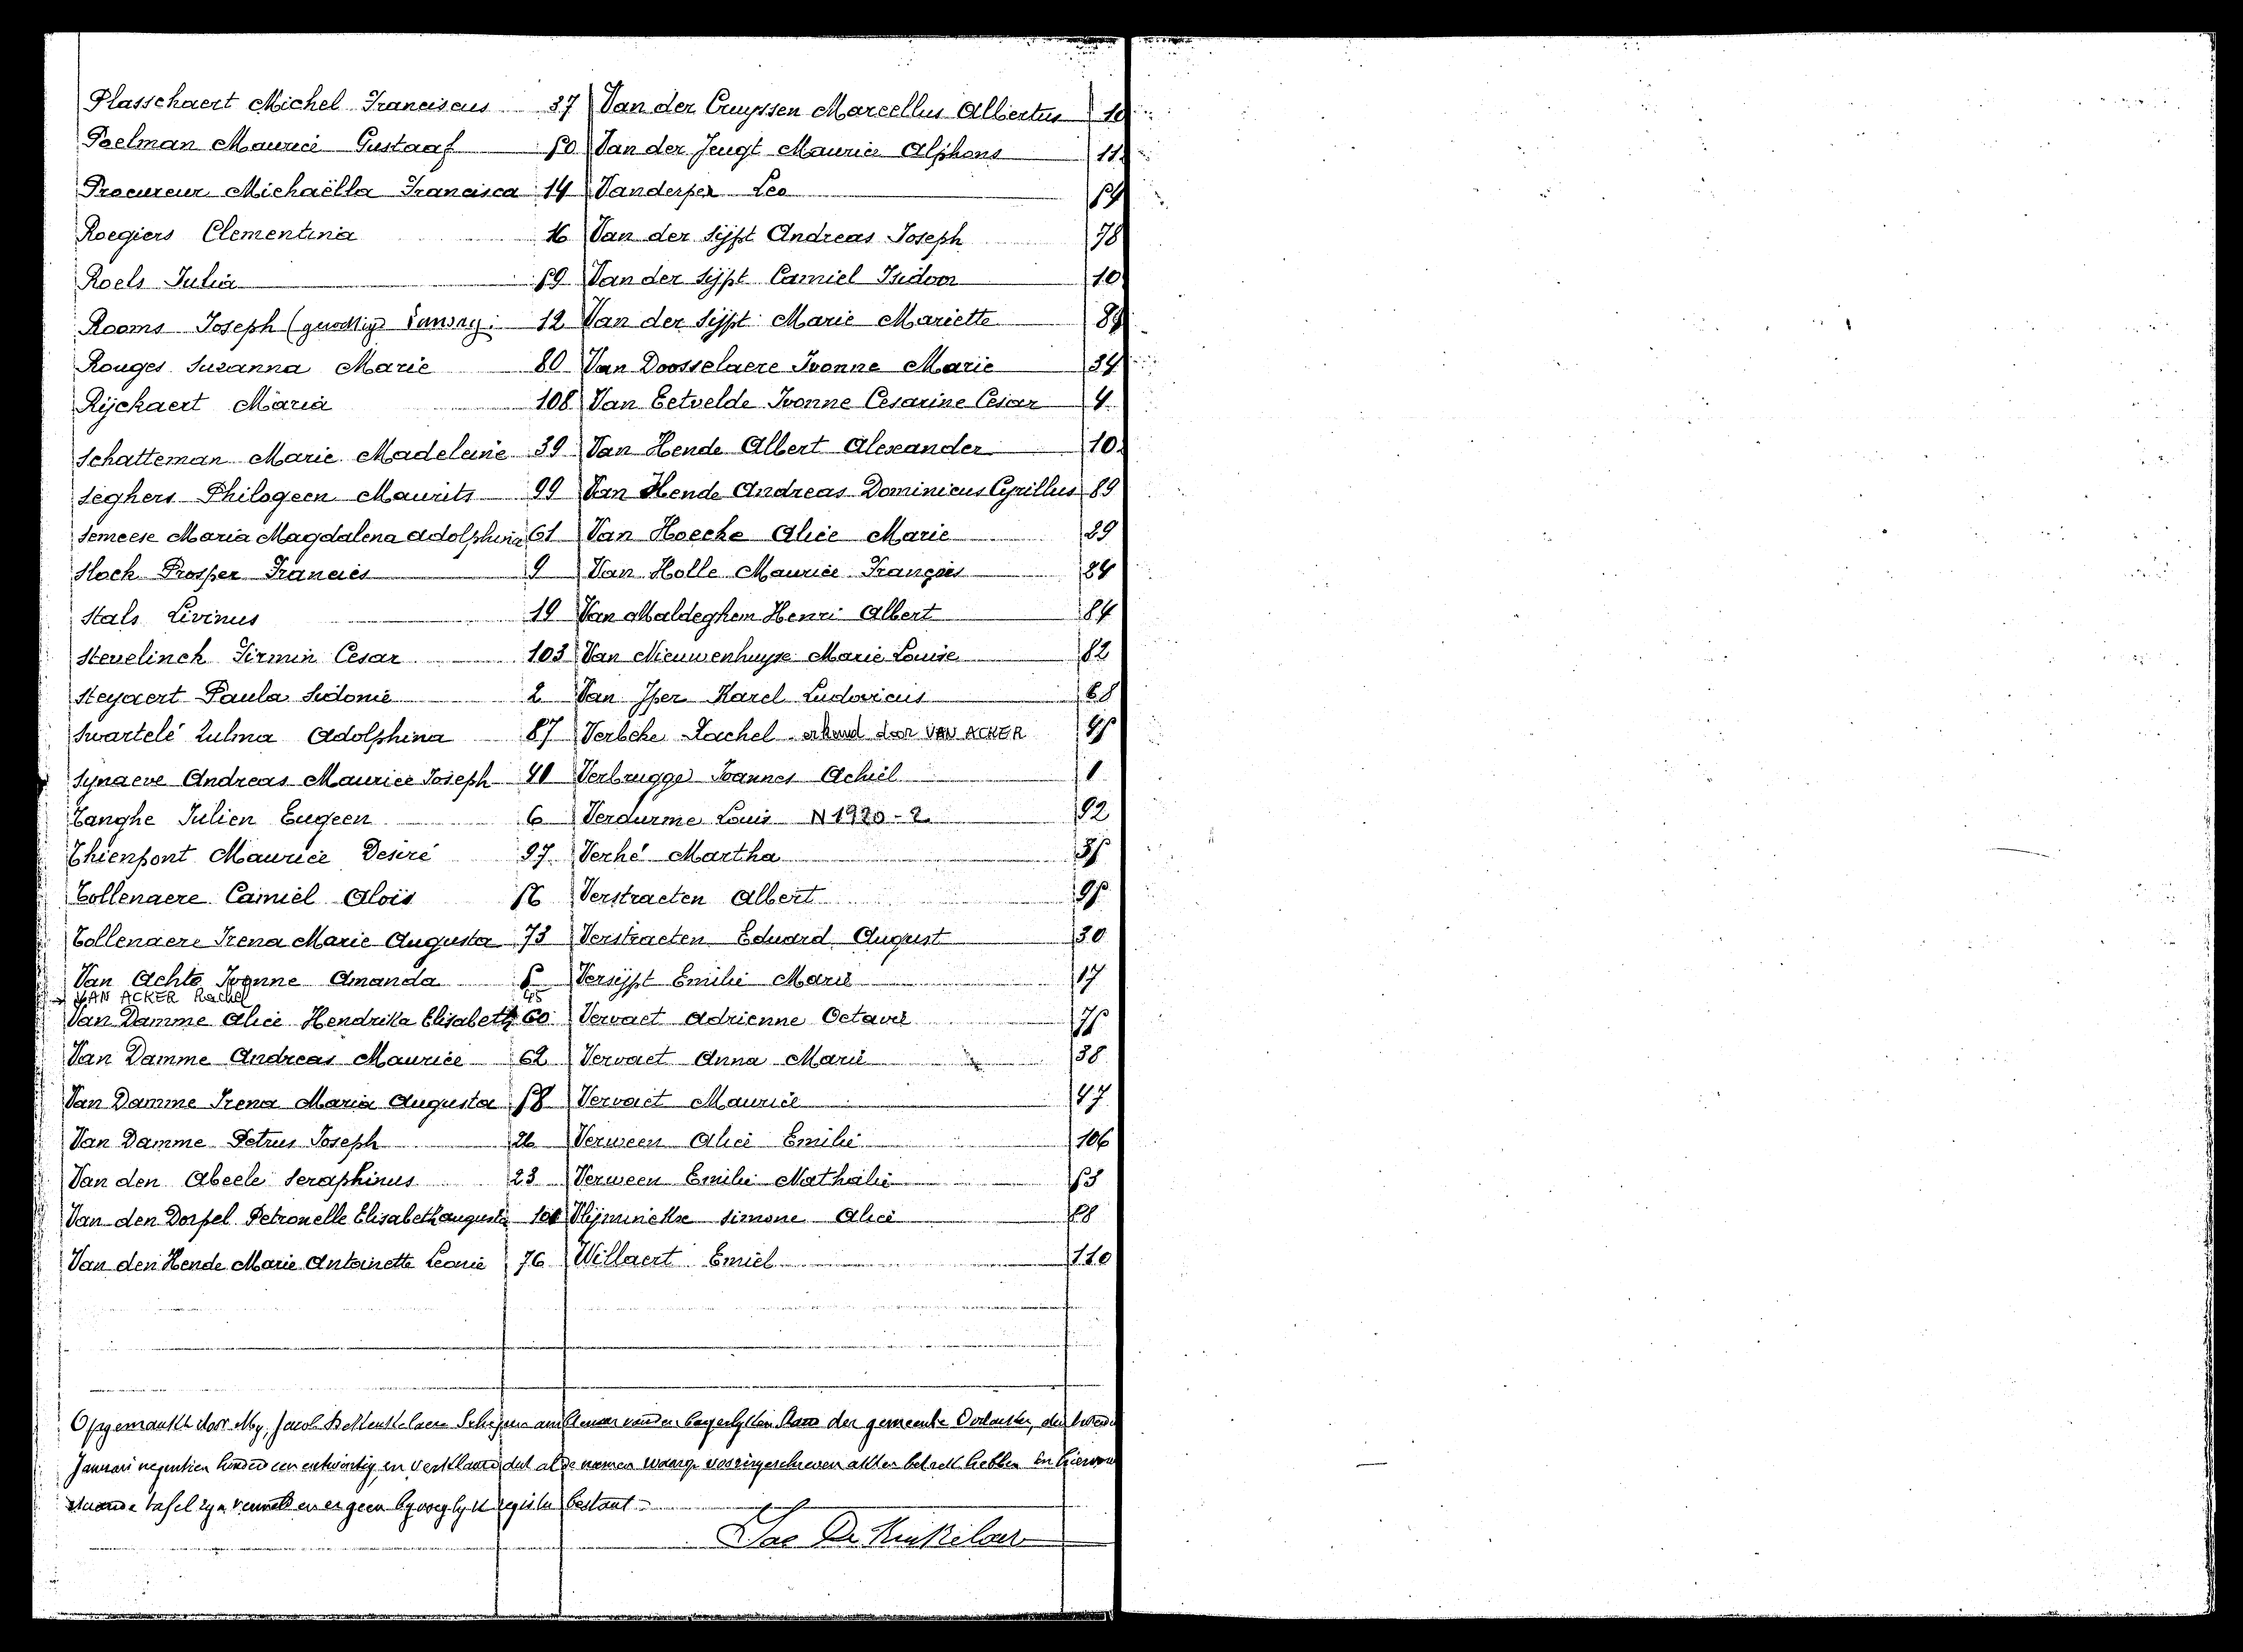 Plasschaert Michel Franciscus 37
Poelman Maurice Gustaaf 50
Procureur Michaëlla Francisca 14
Roegiers Clementina 16
Roels Julia 59
Rooms Joseph 12
Rouges Suzanna Marie 80
Rijckaert Maria 108
Schatteman Marie Madeleine 39
Seghers Philogeen Maurits 99
Semeese Maria Magdalena Adolphina 61
Slock Prosper Francies 9
Stals Livinus 19
Stevelinck Firmin Cesar 103
Steyaert Paula Sidonie 2
Swartelé Zulma Adolphina 87
Synaeve Andreas Maurice Joseph 40
Tanghe Julien Eugeen 6
Thienpont Maurice Desiré 97
Tollenaere Camiel Aloïs 56
Tollenaere Irena Marie Augusta 73
Van Achte Ivonne Amanda 5
VAN ACKER Rachel 45
Van Damme Alice Hendrika Elisabeth 60
Van Damme Andreas Maurice 62
Van Damme Irena Maria Augusta 58
Van Damme Petrus Joseph 26
Van den Abeele Seraphinus 23
Van den Dorpel Petronelle Elisabeth Augusta
Van den Hende Marie Antoinette Leonie 76
Van der Cruyssen Marcellus Albertus 10
Van der Jeugt Maurice Alphons 11
Vanderper Leo 54
Van der Sijpt Andreas Joseph 78
Van der Sijpt Camiel Isidoor 10
Van der Sijpt Marie Mariette
Van Doosselaere Ivonne Marie 34
Van Eetvelde Ivonne Cesarine Cesar 4
Van Hende Albert Alexander 10
Van Hende Andreas Dominicus Cyrillus 89
Van Hoecke Alice Marie 29
Van Holle Maurice François 24
Van Maldeghem Henri Albert 84
Van Nieuwenhuyse Marie Louise 82
Van Iper Karel Ludovicus 68
Verbeke Rachel erkend door VAN ACKER 45
Verbrugge Joannes Achiel
Verdurme Louis N 1920 - 2 92
Verhé Martha 35
Verstraeten Albert 95
Verstraeten Eduard August 30
Versijpt Emilie Marie 17
Vervaet Adrienne Octavie 75
Vervaet Anna Marie 38
Vervaet Maurice 47
Verween Alice Emilie 106
Verween Emilie Nathalie 53
Vlijminckx Simone Alice
Willaert Emiel 110
Opgemaakt door Mij, Jacob De Keukelaere Schepene ambtenaar van den burgerlijken Stand der gemeente
Januari negentien honderd een en twintig, en verklaard dat al de namen voeringeschreven akten betrek hebben in
staande tafel zijn vermeld en er geen bijvoeglijk register bestaat
Jac De Keukelaere